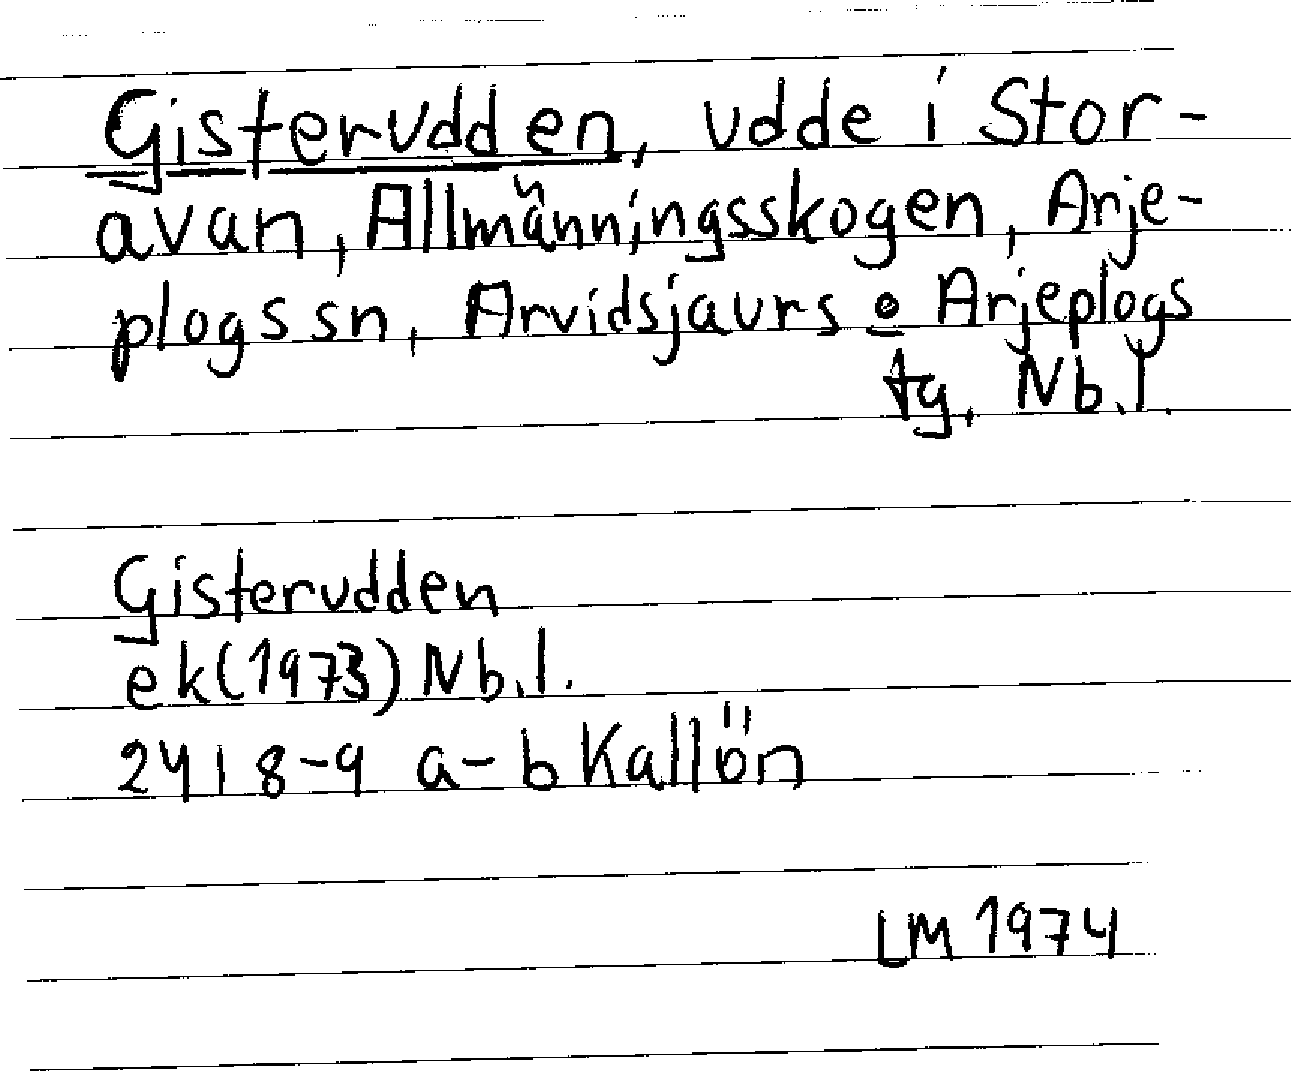 Gisterudden, udde i Stor-
avan, Allmänningsskogen, Arje-
plogs sn, Arvidsjaurs o Arjeplogs
tg, Nb.l.
Gisterudden
ek(1973) Nb.l.
24I 8-9 a-b Kallön
LM 1974